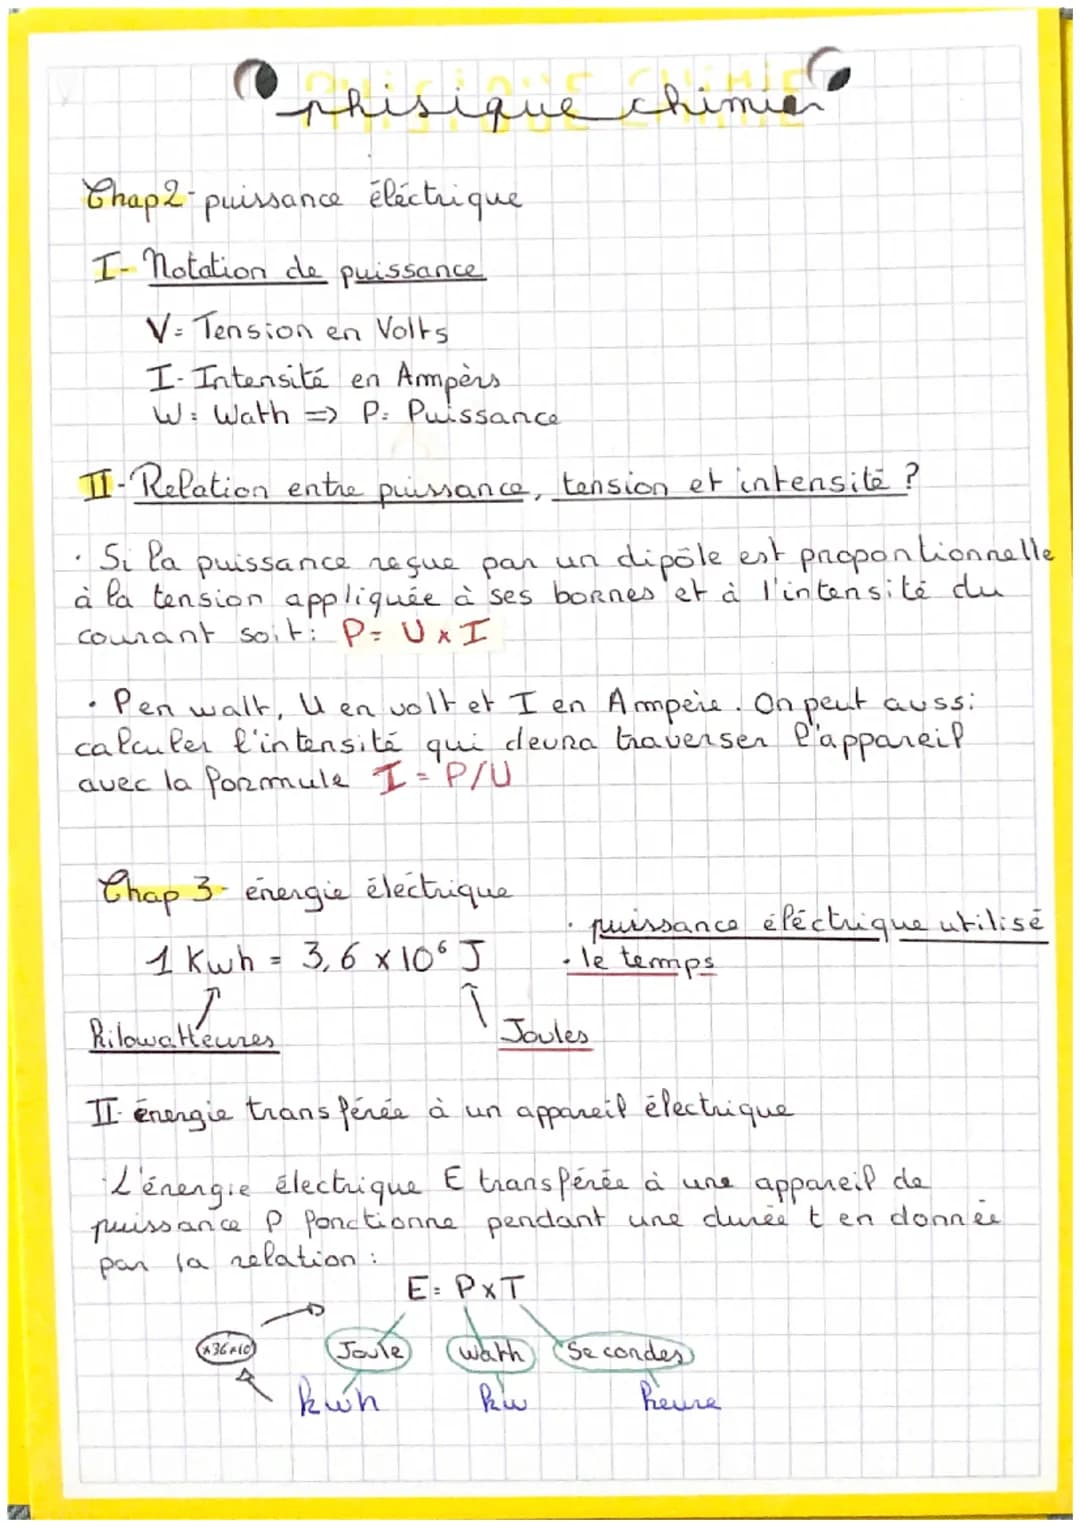 PHISIQUE CHIMIE
phisique chimie
Chap2-puissance éléctrique
I- Notation de puissance
V= Tension en Volts
I- Intensité en Ampèrs
W= Wath => P= Puissance
II- Relation entre puissance, tension et intensité ?
· Si la puissance reçue par un dipôle est proportionnelle
à la tension appliquée à ses bornes et à l'intensité du
courant soit: P= U x I
· P en walt, U en volt et I en Ampère. On peut aussi
calculer l'intensité qui devra traverser l'appareil
avec la formule I = P/U
Chap 3- énergie électrique
· puissance éléctrique utilisé
1 Kwh = 3,6 x 10⁶ J
· le temps
Kilowatteures
Joules
II- énergie transférée à un appareil électrique
L'énergie électrique E transférée à une appareil de
puissance P fonctionne pendant une durée t en donnée
par la relation :
E= PxT
Joule wath Secondes
kwh kw heure